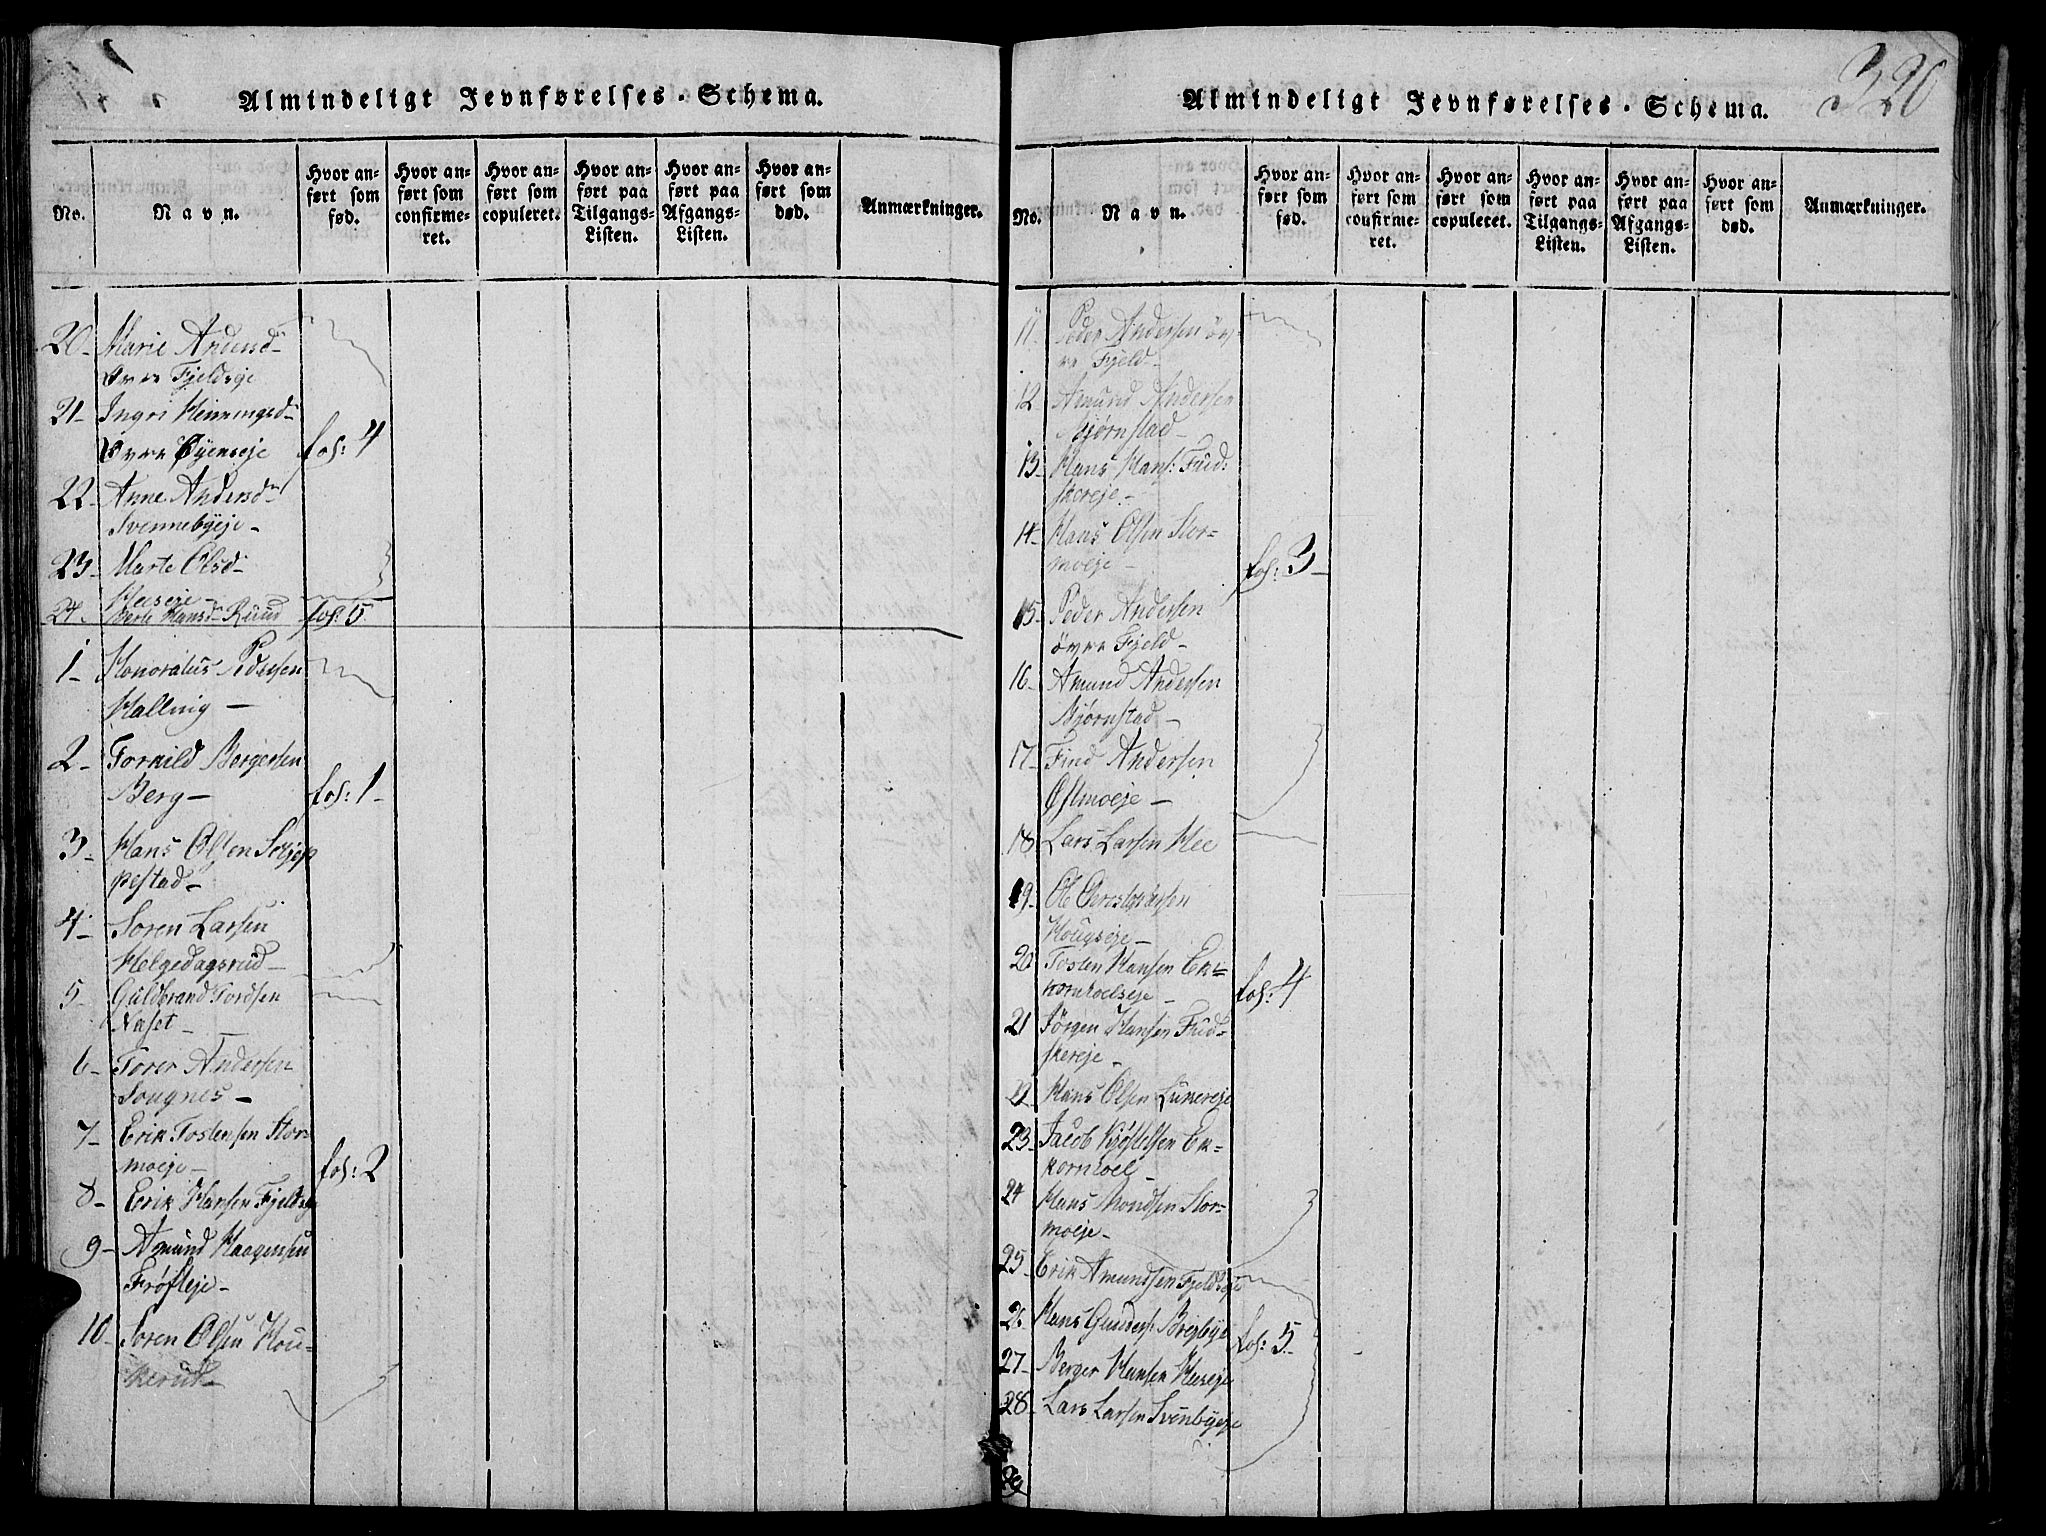 Almindeligt Jevnførelses-Schema.
No.
Navn.
Hvor an-
ført som
fød.
Hvor an-
ført som
confirme-
ret.
Hvor an-
ført som
copuleret.
Hvor an-
ført paa
Tilgangs-
Listen.
Hvor an-
ført paa
Afgangs-
Listen.
Hvor an-
ført som
død.
Anmærkninger.
20- Marie Andersd-
Øvre Fjeldseje
21- Ingri Henningsd-
Øvre Øyenseje fol: 4
22- Anne Andersd-
Svennebyeje-
23- Marte Olsd-
Heeseje-
24- Berte Hansd- Ruud fol: 5
1- Honoratus Pedersen
Halling-
2- Torkild Bergersen
Berg- fol: 1-
3- Hans Olsen Sejep
pestad-
4- Soren Larsen
Helgedagsrud-
5- Guldbrand Tordsen
Naset-
6- Torer Andersen
Sougnes-
7- Erik Tostensen Stor-
moeje- fol: 2
8- Erik Hansen Fjeldseje
9- Amund Haagensen
Frøsleje-
10- Soren Olsen Hou-
kerud-
Almindeligt Jevnførelses-Schema.
320
No.
Navn.
Hvor an-
ført som
fød.
Hvor an-
ført som
confirme-
ret.
Hvor an-
ført som
copuleret.
Hvor an-
ført paa
Tilgangs-
Listen.
Hvor an-
ført paa
Afgangs-
Listen.
Hvor an-
ført som
død.
Anmærkninger.
11- Peder Andersen öv-
re Fjeld-
12- Amund Andersen
Bjørnstad-
13- Hans Hans: Fud:
skereje-
14- Hans Olsen Stor-
moeje- fol: 3-
15- Peder Andersen
övre Fjeld-
16- Amund Andersen
Bjørnstad-
17- Find Andersen
Østmoeje-
18 Lars Larsen Hee
19- Ole Christophersen
Hougseje-
20 Tosten Hansen Ek-
kornhoelseje- fol: 4
21 Jörgen Hansen Fud-
skereje-
22 Hans Olsen Lunereje
23- Jacob Kjöstelsen Ek-
kornhoel
24 Hans Mondsen Stor-
moeje-
25- Erik Amundsen Fjeldseje
26- Hans Gunders: Bregbye fol: 5-
27- Berger Hansen Heeseje
28- Lars Larsen Svenbyeje
29